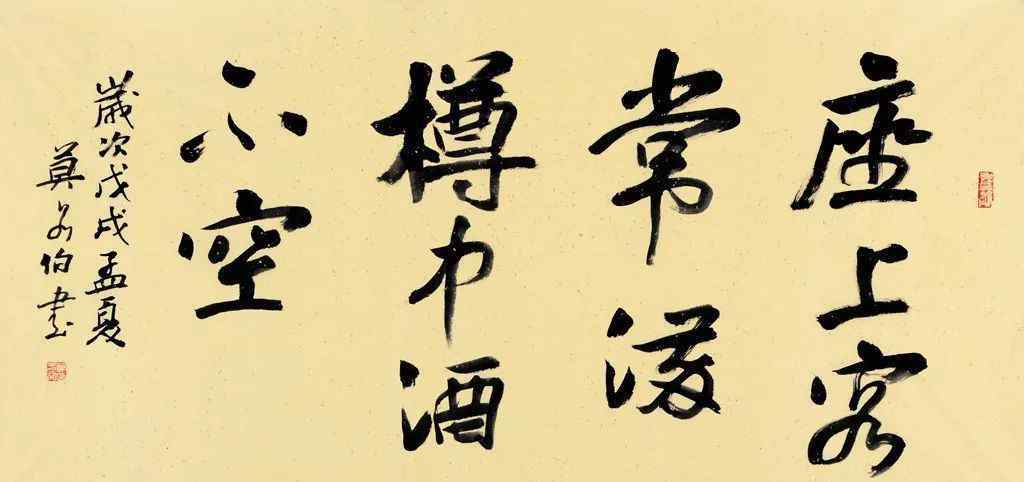 座上客
常滿
樽中酒
不空
歲次戊戌孟夏
莫伯書